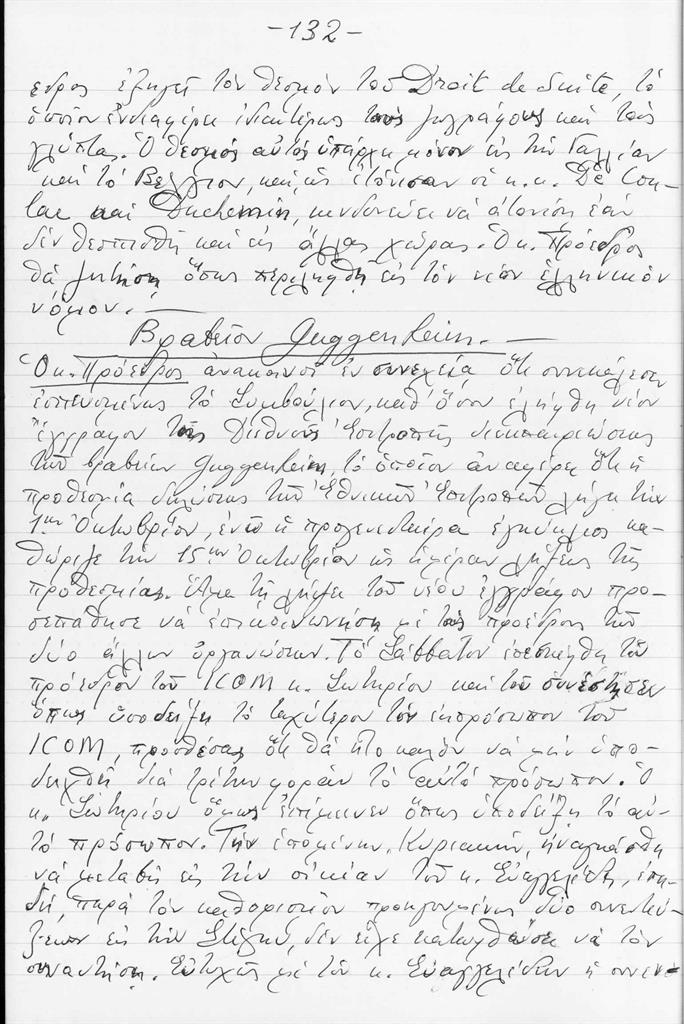 -132-
εδρος ἐξηγεῖ τὸν θεσμὸν τοῦ Droit de Suite, τὸ
ὁποῖον ἐνδιαφέρει ἰδιαιτέρως τοὺς ζωγράφους καὶ τοὺς
γλύπτας. Ὁ θεσμὸς αὐτὸς ὑπάρχει μόνον εἰς τὴν Γαλλίαν
καὶ τὸ Βέλγιον, καὶ, ὡς ἐτόνισαν οἱ κ.κ. De
καὶ Duchemin, κινδυνεύει νὰ ἀτονήσῃ ἐὰν
δὲν θεσπισθῇ καὶ εἰς ἄλλας χώρας. Ὁ κ. Πρόεδρος
θὰ ζητήσῃ ὅπως περιληφθῇ εἰς τὸν νέον ἑλληνικὸν
νόμον. —
Βραβεῖον Guggenheim. —
Ὁ κ. Πρόεδρος ἀνακοινοῖ ἐν συνεχείᾳ ὅτι συνεκάλεσεν
ἐσπευσμένως τὸ Συμβούλιον, καθ' ὅσον ἐλήφθη νέον
ἔγγραφον τῆς Διεθνοῦς Ἐπιτροπῆς
τοῦ βραβείου Guggenheim, τὸ ὁποῖον ἀναφέρει ὅτι ἡ
προθεσμία δηλώσεως τῶν Ἐθνικῶν Ἐπιτροπῶν λήγει τὴν
1ην Ὀκτωβρίου, ἐνῶ ἡ προγενεστέρα ἐγκύκλιος κα-
θώριζε τὴν 15ην Ὀκτωβρίου ὡς ἡμέραν λήξεως τῆς
προθεσμίας. Ἅμα τῇ λήψει τοῦ νέου ἐγγράφου προ-
σεπάθησε νὰ ἐπικοινωνήσῃ μὲ τοὺς προέδρους τῶν
δύο ἄλλων ὀργανώσεων. Τὸ Σάββατον ἐπεσκέφθη τὸν
πρόεδρον τοῦ ICOM κ. Σωτηρίου καὶ τοῦ συνέστησεν
ὅπως ὑποδείξῃ τὸ ταχύτερον τὸν ἐκπρόσωπον τοῦ
ICOM, προσθέσας ὅτι θὰ ἦτο καλὸν νὰ μὴν ὑπο-
δειχθῇ διὰ τρίτην φορὰν τὸ αὐτὸ πρόσωπον. Ὁ
κ. Σωτηρίου ὅμως ἐπέμεινεν ὅπως ὑποδείξῃ τὸ αὐ-
τὸ πρόσωπον. Τὴν ἑπομένην, Κυριακήν, ἠναγκάσθη
νὰ μεταβῇ εἰς τὴν οἰκίαν τοῦ κ. Εὐαγγελίδη, ἐπει-
δή, παρὰ τὸν καθορισμὸν προηγουμένως δύο συνεντεύ-
ξεων εἰς τὴν Στέγην, δὲν εἶχε κατορθώσει νὰ τὸν
συναντήσῃ. Εὐτυχῶς μὲ τὸν κ. Εὐαγγελίδην ἡ συνεν-